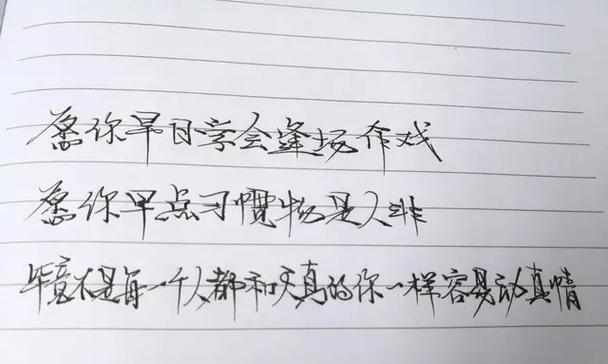 愿你早日学会逢场作戏
愿你早点习惯物是人非
毕竟不是每一个人都和天真的你一样容易动真情